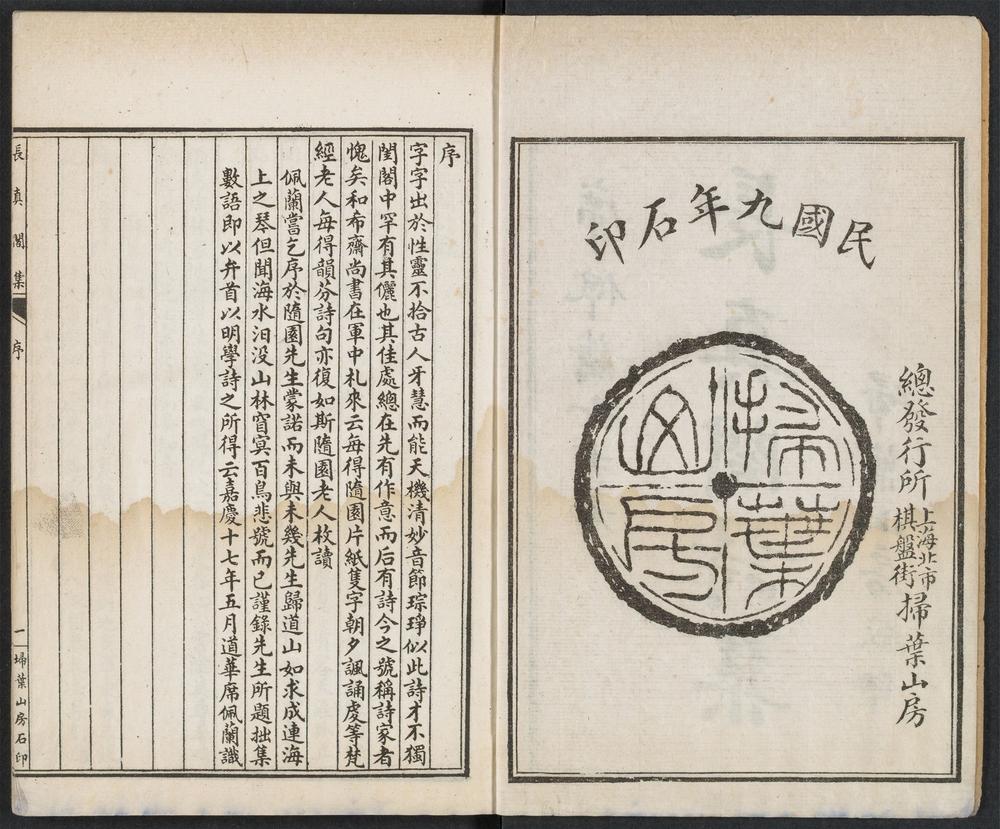 民國九年石印
掃葉山房
總發行所 上海北市棋盤街 掃葉山房
序
字字出於性靈不拾古人牙慧而能天機清妙音節琮琤似此詩才不獨
閨閣中罕有其儷也其佳處總在先有作意而后有詩今之號稱詩家者
愧矣和希齋尚書在軍中札來云每得隨園片紙隻字朝夕諷誦虔等梵
經老人每得韻芬詩句亦復如斯隨園老人枚讀
佩蘭嘗乞序於隨園先生蒙諾而未與未幾先生歸道山如求成連海
上之琴但聞海水汨没山林窅冥百鳥悲號而已謹錄先生所題拙集
數語即以弁首以明學詩之所得云嘉慶十七年五月道華席佩蘭識
長真閣集 序 二 埽葉山房石印